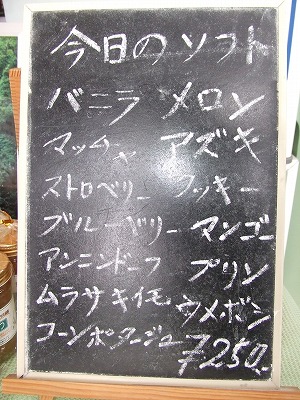 今日のソフト
バニラ メロン
マッチャ アズキ
ストロベリー クッキー
ブルーベリー マンゴー
アンニンドーフ プリン
ムラサキイモ ウメボシ
コーンポタージュ
¥250.